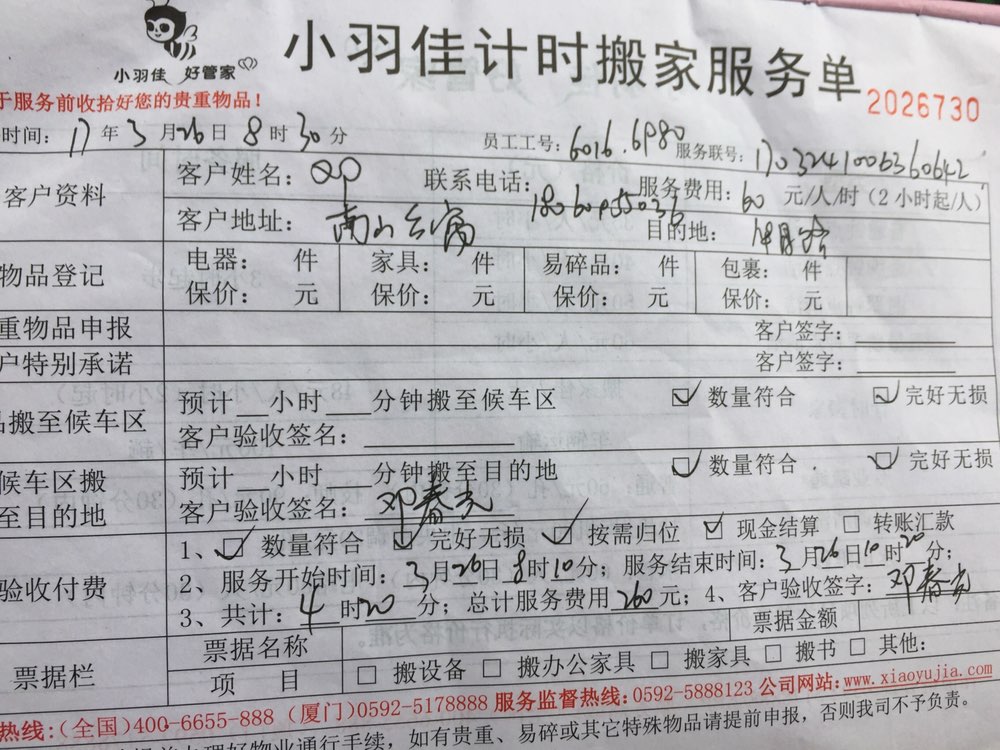 小羽佳 好管家
小羽佳计时搬家服务单
2026730
于服务前收拾好您的贵重物品！
时间：17年3月26日8时30分 员工工号：6016.6980 服务联号：170324100636 0642
客户资料
客户姓名： 联系电话： 服务费用：60元/人/时（2小时起/人）
客户地址：南山 目的地：
物品登记
电器： 件 家具： 件 易碎品： 件 包裹： 件
保价： 元 保价： 元 保价： 元 保价： 元
重物品申报 客户签字：
户特别承诺 客户签字：
品搬至候车区
预计 小时 分钟搬至候车区 数量符合 完好无损
客户验收签名：
候车区搬
至目的地
预计 小时 分钟搬至目的地 数量符合 完好无损
客户验收签名：邓春
验收付费
1、 数量符合 完好无损 按需归位 现金结算 转账汇款
2、服务开始时间：3月26日8时10分；服务结束时间：3月26日10时20分；
3、共计：4时20分；总计服务费用260元；4、客户验收签字：邓春
票据栏
票据名称 票据金额
项 目 搬设备 搬办公家具 搬家具 搬书 其他：
热线：（全国）400-6655-888（厦门）0592-5178888 服务监督热线：0592-5888123 公司网站：www.xiaoyujia.com
理好物业通行手续，如有贵重、易碎或其它特殊物品请提前申报，否则我司不予负责。